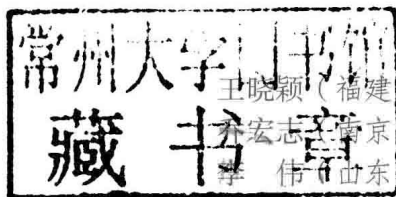 常州大学图书馆
藏书章
王晓颖（福建
乔宏志（南京
李　伟（山东